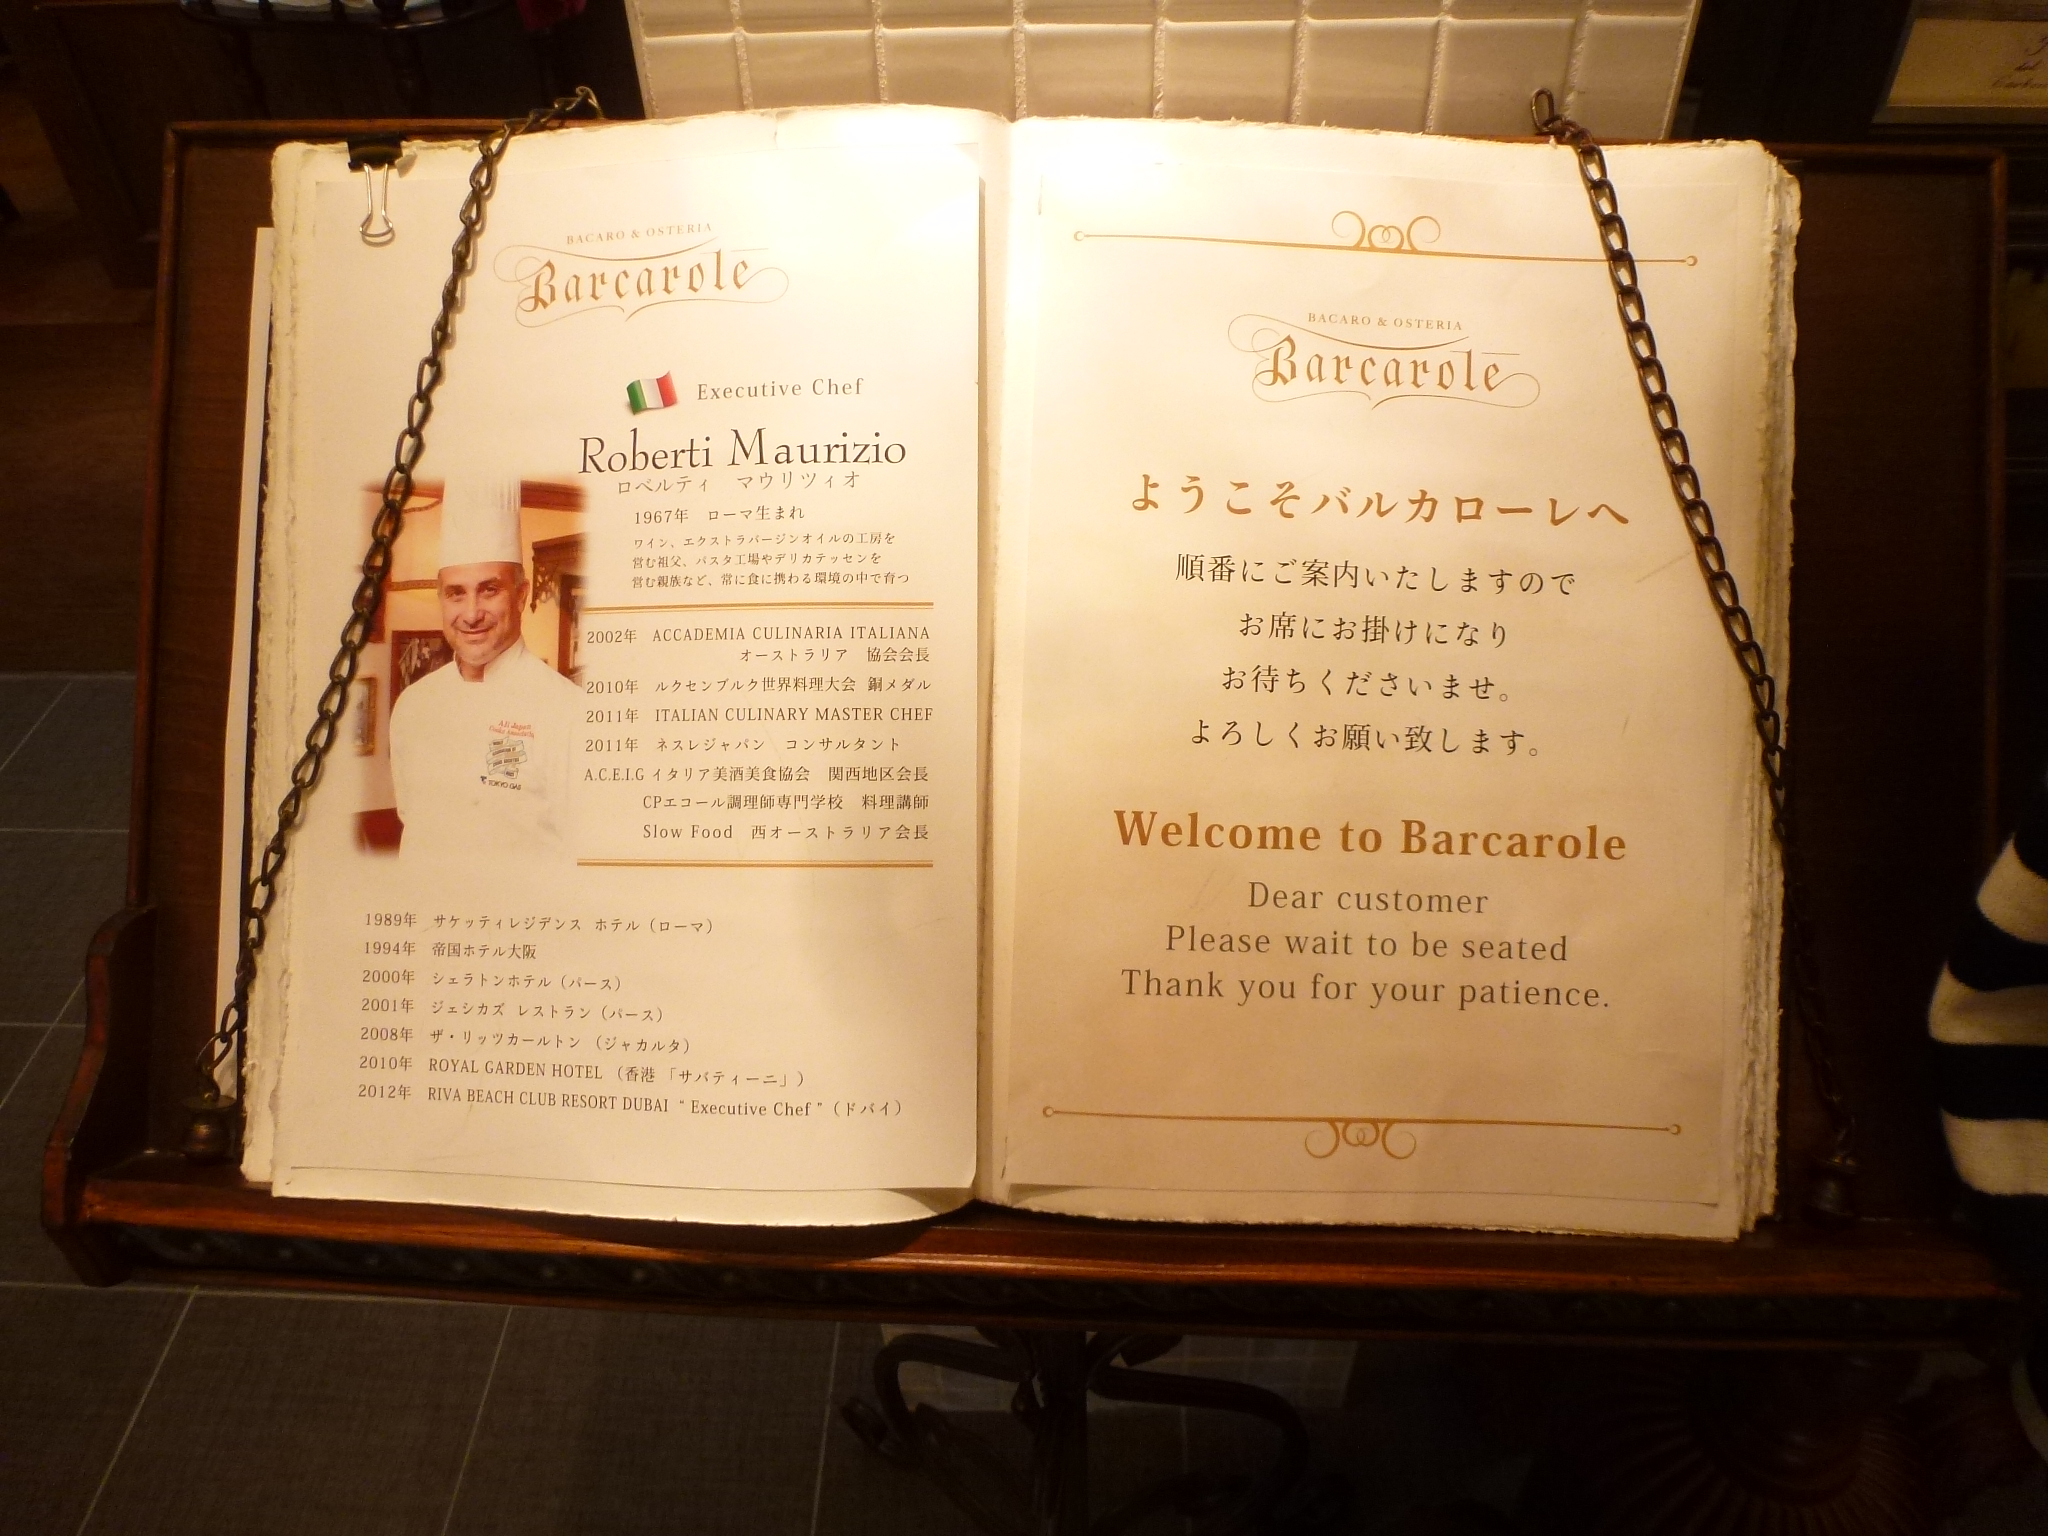 BACARO & OSTERIA
Barcarole
Executive Chef
Roberti Maurizio
ロベルティ　マウリツィオ
1967年　ローマ生まれ
ワイン、エクストラバージンオイルの工房を
営む祖父、パスタ工場やデリカテッセンを
営む親族など、常に食に携わる環境の中で育つ
2002年　ACCADEMIA CULINARIA ITALIANA
オーストラリア　協会会長
2010年　ルクセンブルク世界料理大会　銅メダル
2011年　ITALIAN CULINARY MASTER CHEF
2011年　ネスレジャパン　コンサルタント
A.C.E.I.G イタリア美酒美食協会　関西地区会長
CPエコール調理師専門学校　料理講師
Slow Food　西オーストラリア会長
All Japan
TOKYO GAS
1989年　サケッティレジデンス ホテル（ローマ）
1994年　帝国ホテル大阪
2000年　シェラトンホテル（パース）
2001年　ジェシカズ レストラン（パース）
2008年　ザ・リッツカールトン（ジャカルタ）
2010年　ROYAL GARDEN HOTEL（香港 「サバティーニ」）
2012年　RIVA BEACH CLUB RESORT DUBAI “ Executive Chef ”（ドバイ）
BACARO & OSTERIA
Barcarole
ようこそバルカローレへ
順番にご案内いたしますので
お席にお掛けになり
お待ちくださいませ。
よろしくお願い致します。
Welcome to Barcarole
Dear customer
Please wait to be seated
Thank you for your patience.